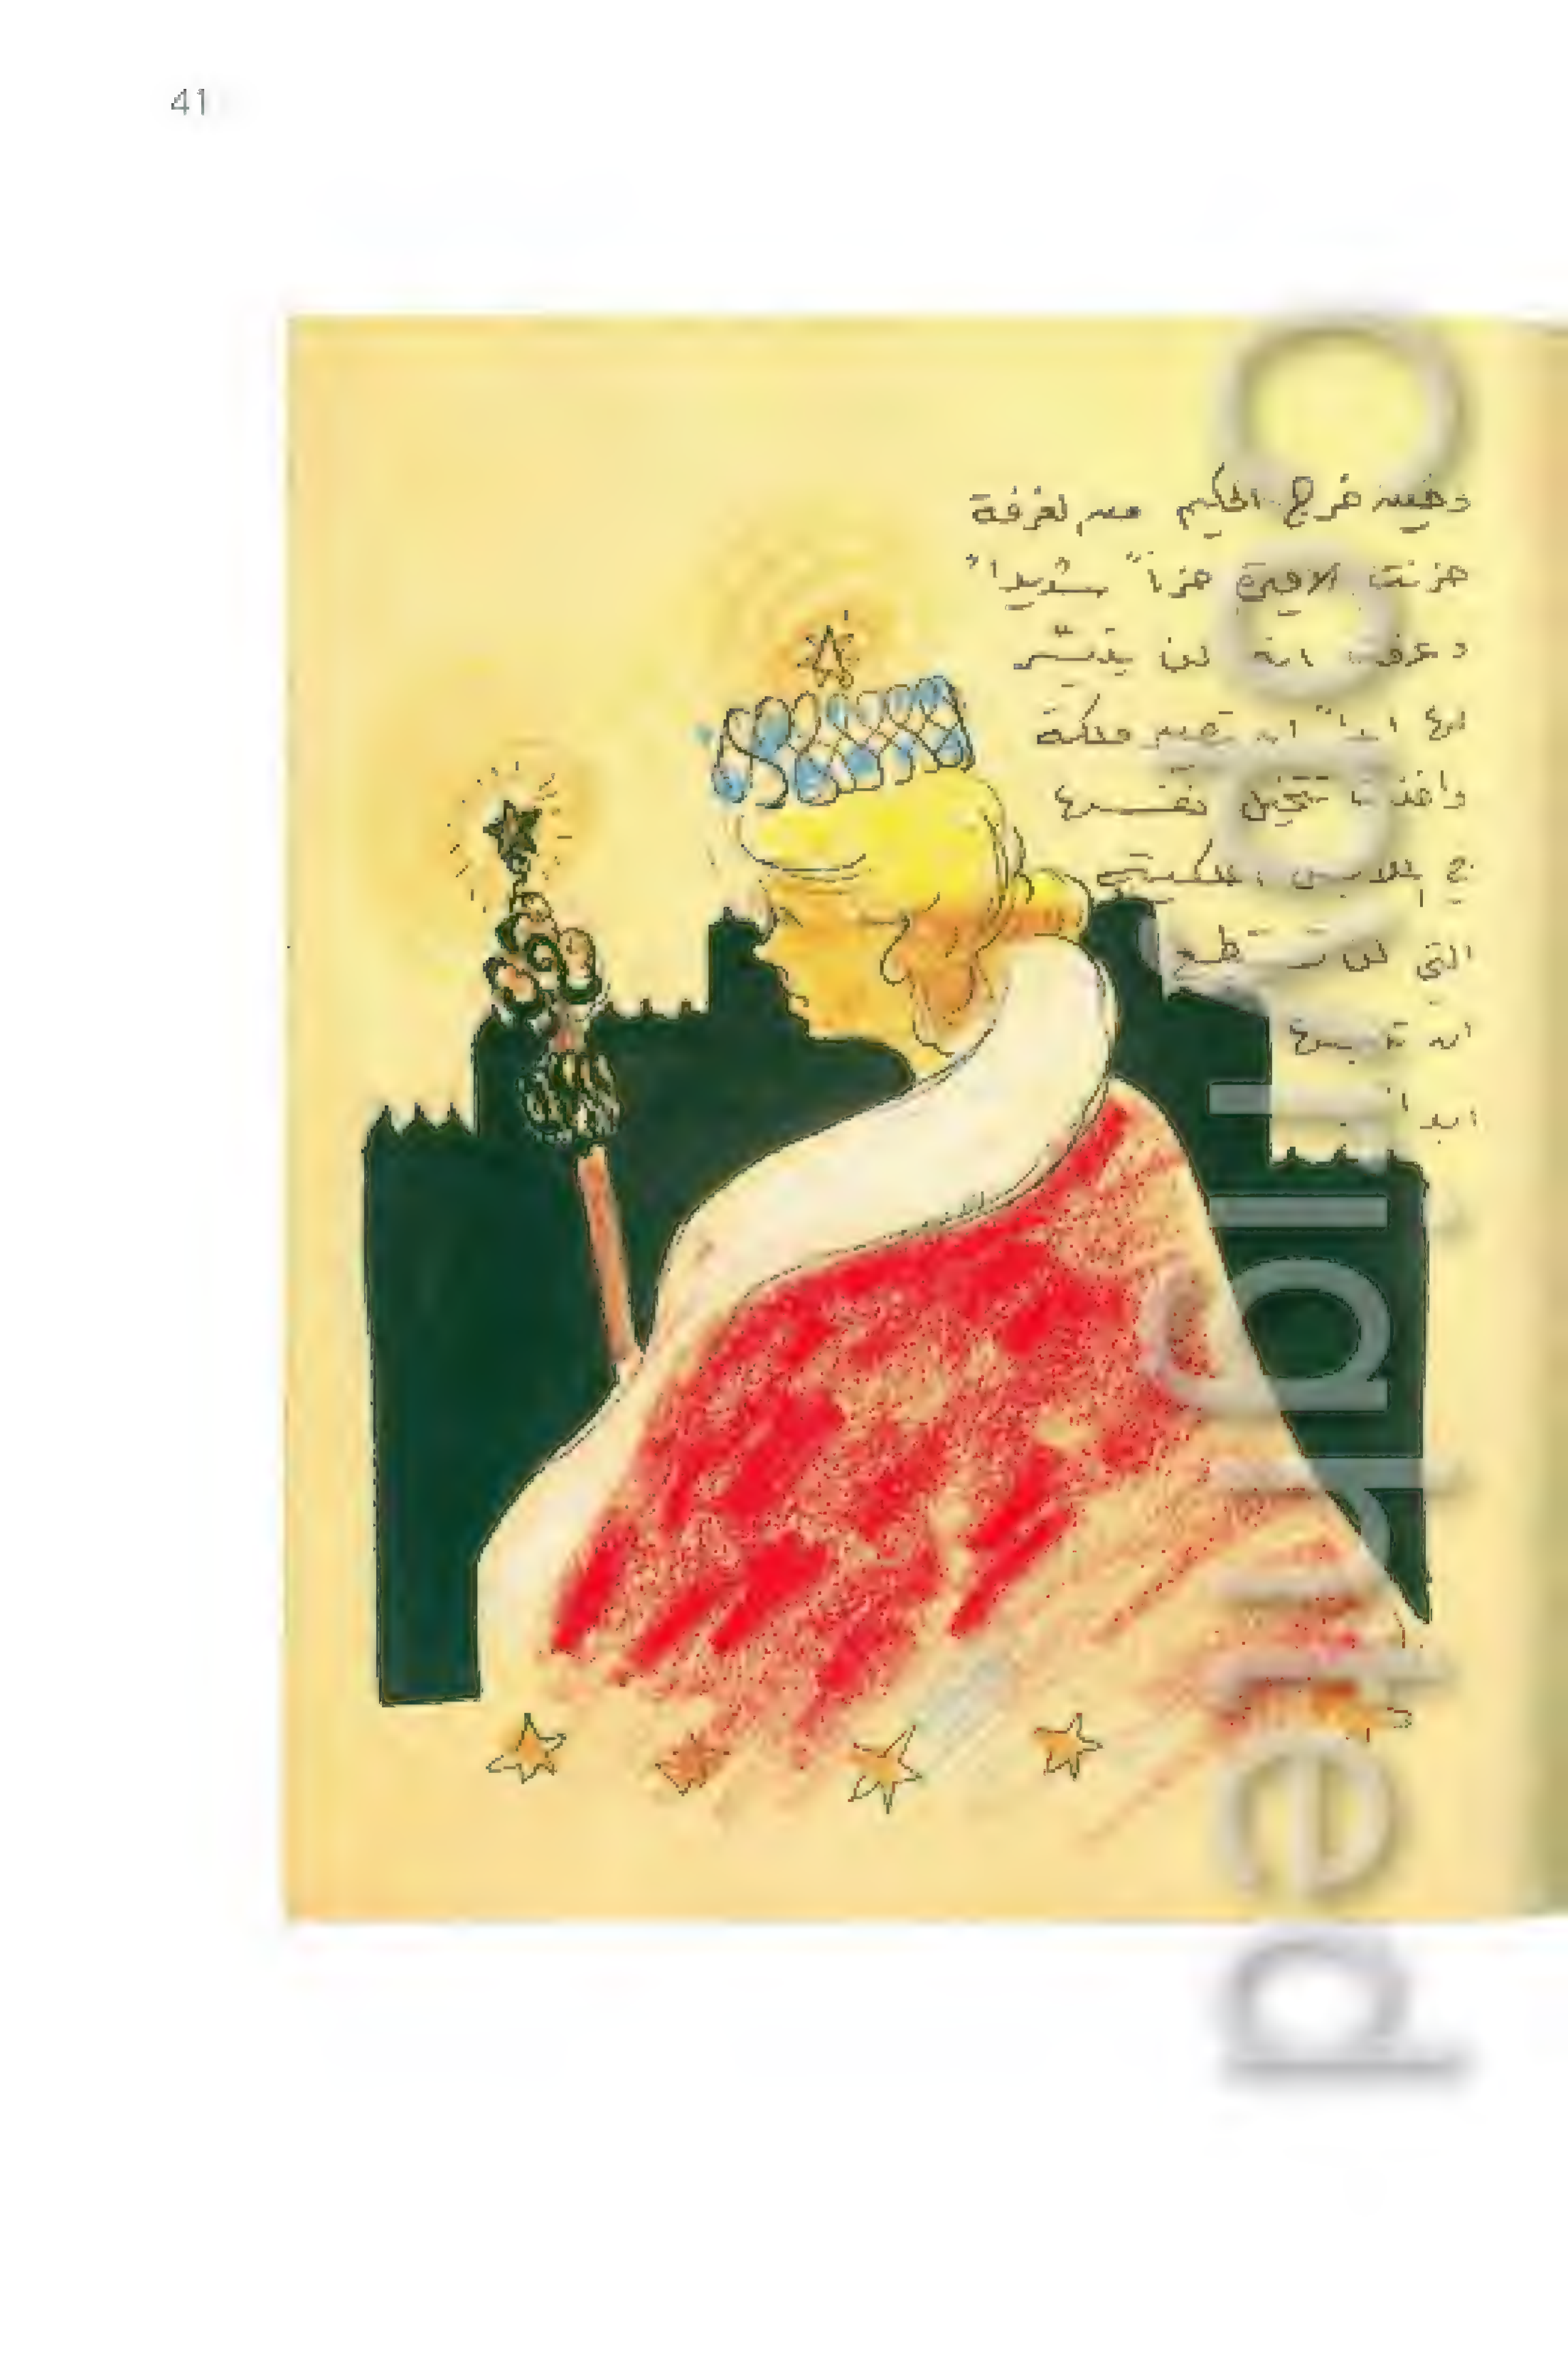 41
وحين خرج الحكيم من الغرفة
حزنت الاميرة حزناً شديداً
و عرفت انه لن يتيسّر
لها ابداً ان تصير ملكة
واخذت تتخيل نفسها
في الملابس الملكية
التي لن تستطيع
ان تلبسها
ابداً
Copyrighted